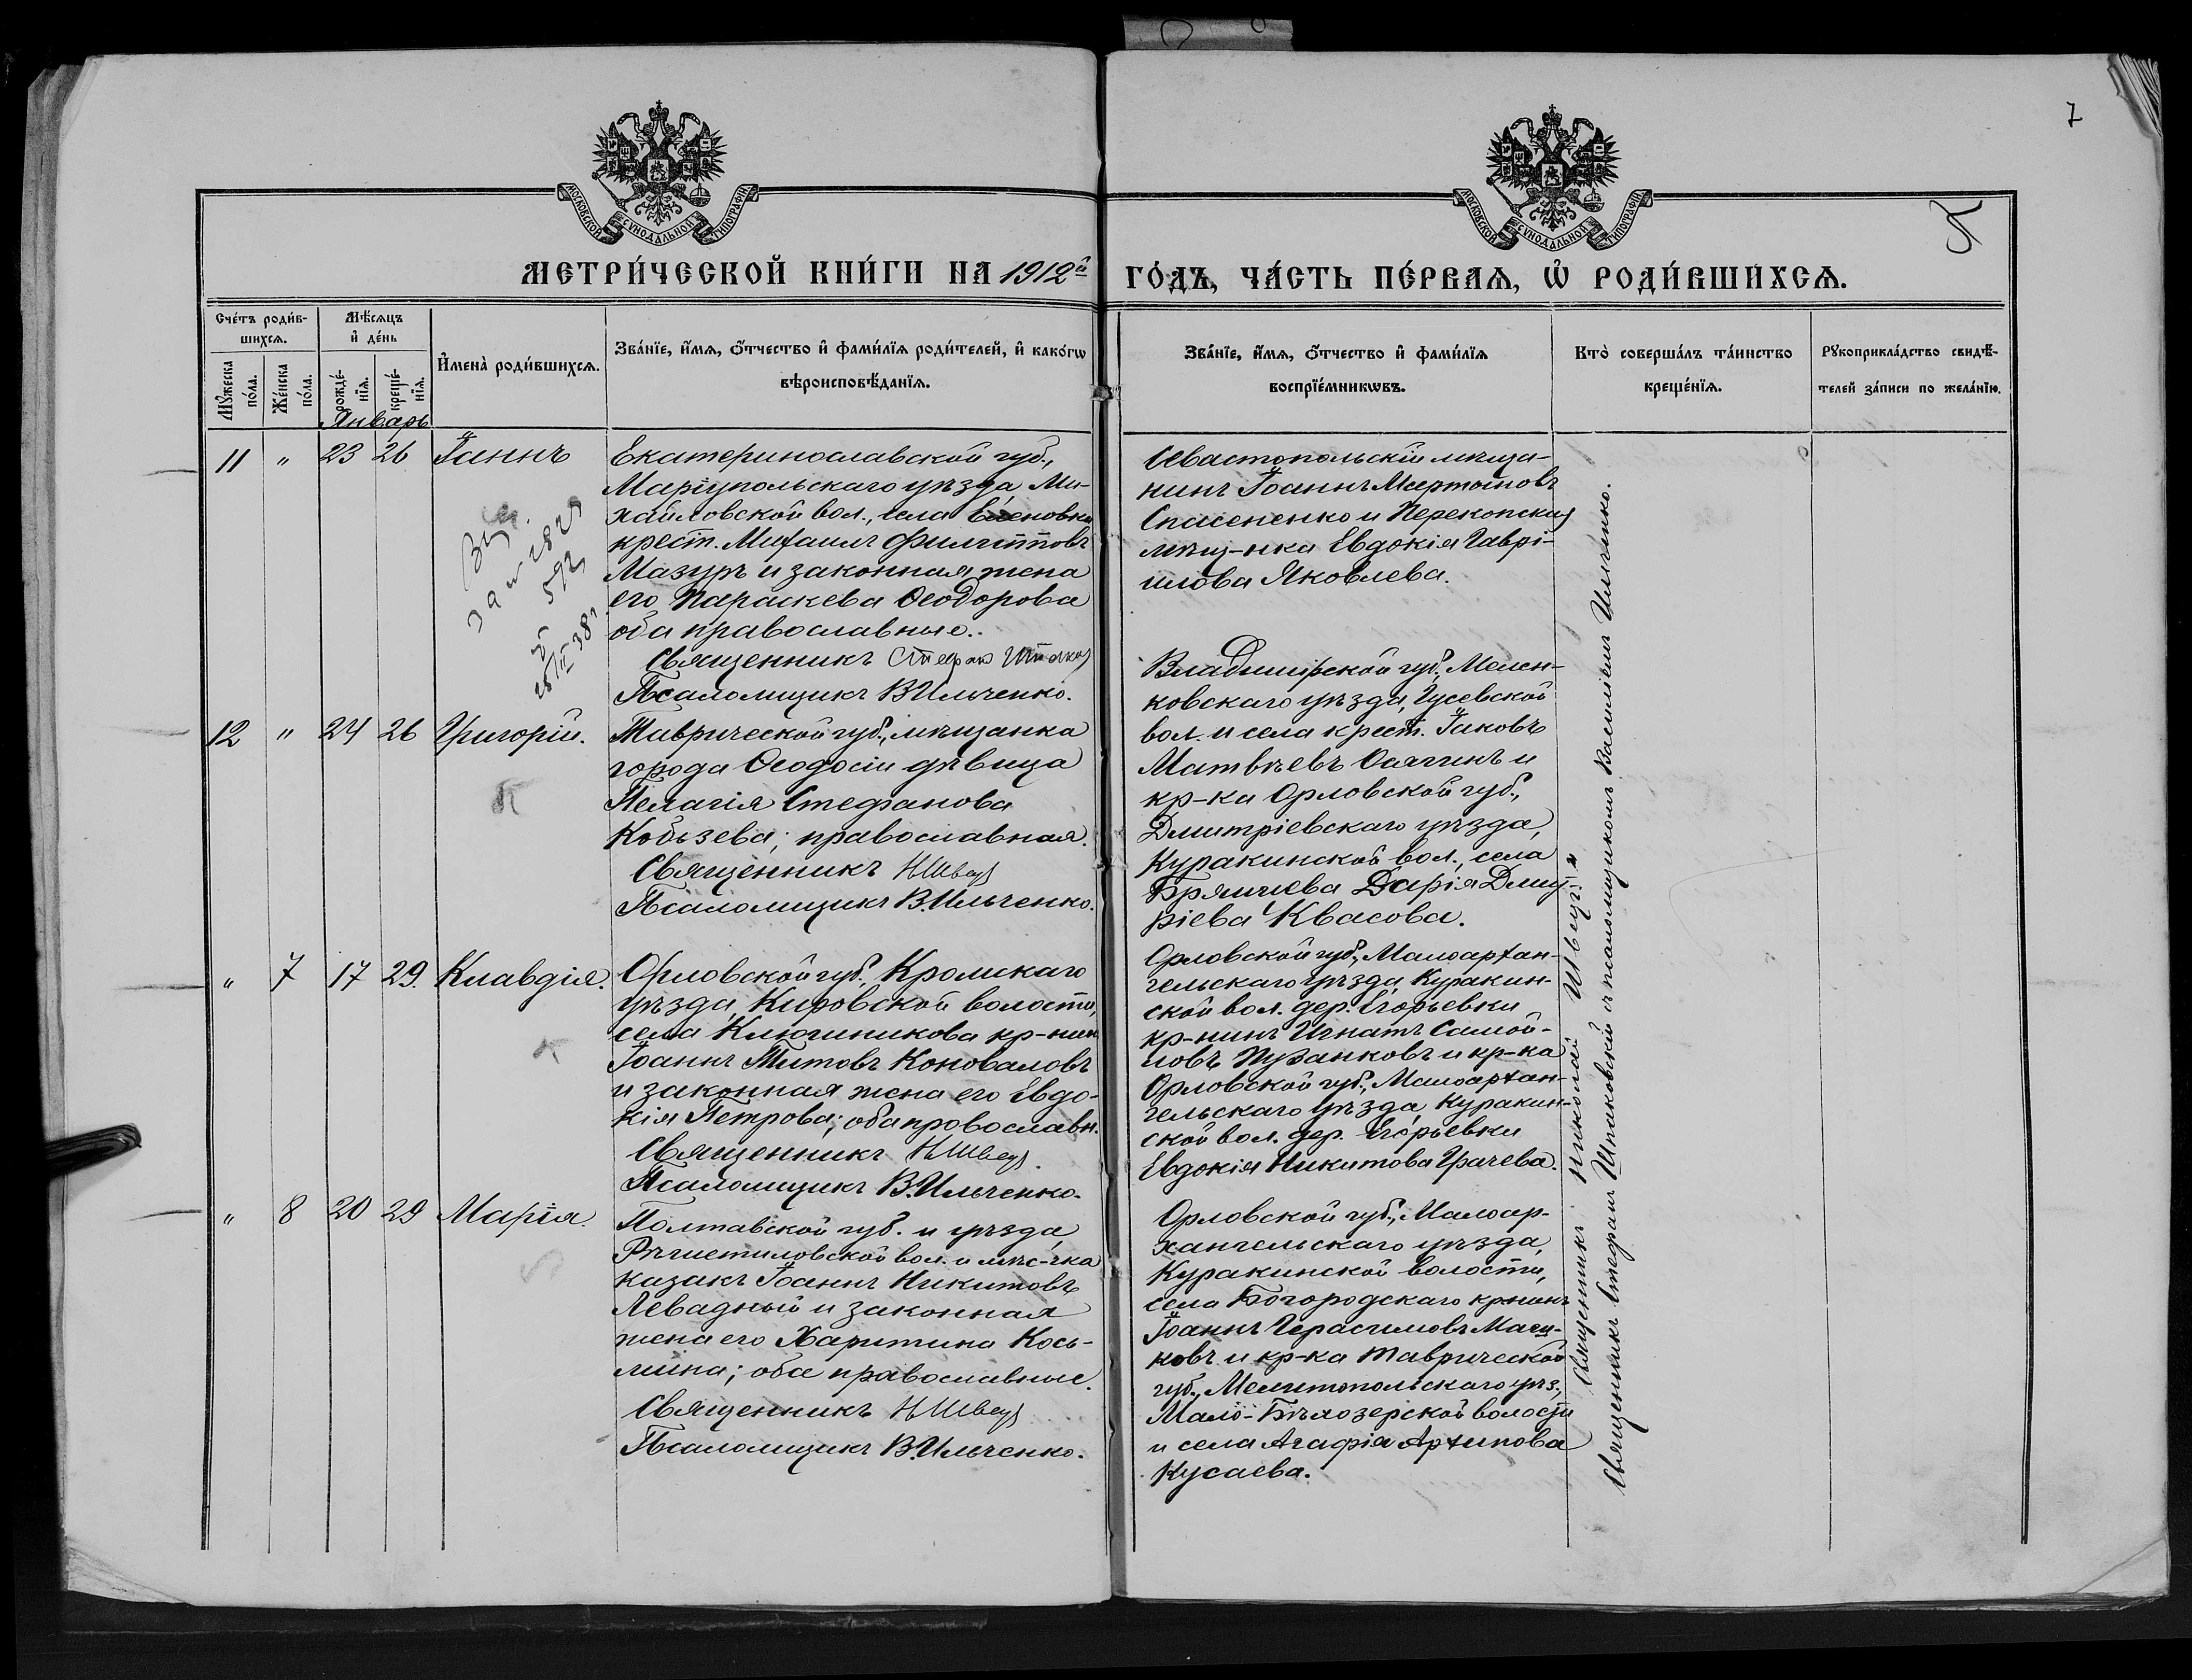 7
МОСКОВСКОЙ СУНОДАЛЬНОЙ ТИПОГРАФІИ
МОСКОВСКОЙ СУНОДАЛЬНОЙ ТИПОГРАФІИ
МЕТРИ́ЧЕСКОЙ КНИ́ГИ НА 1912й ГО́ДЪ, ЧА́СТЬ ПЕ́РВАѦ, Ѡ҆ РОДИ́ВШИХСѦ.
Сче́тъ роди́в-
шихсѧ.
Мꙋ́жеска
по́ла.
Же́нска
по́ла.
Мѣ́сѧцъ
и҆ де́нь
рожде́-
нїѧ.
креще́-
нїѧ.
Январь
И҆мена̀ роди́вшихсѧ.
Зва́нїе, и҆́мѧ, ѻ҆́тчество и҆ фами́лїѧ роди́телей, и҆ како́гѡ
вѣроисповѣ́данїѧ.
Зва́нїе, и҆́мѧ, ѻ҆́тчество и҆ фами́лїѧ
воспрїе́мникѡвъ.
Кто̀ соверша́лъ та́инство
креще́нїѧ.
Рꙋкоприкла́дство свидѣ́-
телей за́писи по жела́нїю.
11 " 23 26 Іоаннъ
Екатеринославской губ.,
Маріупольскаго уѣзда, Ми-
хайловской вол., села Еленовки
крест. Михаилъ Филипповъ
Мазуръ и законная жена
его Параскева Ѳеодорова
оба православные.
Священникъ Стефан
Псаломщикъ В.Ильченко.
Севастопольскій мѣща-
нинъ Іоаннъ Мартыновъ
Спасененко и Перекопская
мѣщ-нка Евдокія Гаврі-
илова Яковлева.
12 " 24 26 Григорій.
К
Таврической губ., мѣщанка
города Ѳеодосіи дѣвица
Пелагія Стефанова
Кобзева; православная.
Священникъ Н Швецъ
Псаломщикъ В.Ильченко.
Владимірской губ., Мелен-
ковскаго уѣзда, Гусевской
вол. и села крест. Іаковъ
Матвѣевъ и
кр-ка Орловской губ.,
Дмитріевскаго уѣзда,
Куракинской вол., села
Дарія Дмит-
ріева Квасова.
" 7 17 29 Клавдія.
К
Орловской губ., Кромскаго
уѣзда, Кировской волости,
села Ключникова кр-нин
Іоаннъ Титовъ Коноваловъ
и законная жена его Евдо-
кія Петрова; оба провославн.
Священникъ Н Швецъ.
Псаломщикъ В.Ильченко.
Орловской губ., Малоархан-
гельскаго уѣзда, Куракин-
ской вол. дер. Егорьевки
кр-нинъ Игнатъ Самой-
ловъ Пузанковъ и кр-ка
Орловской губ., Малоархан-
гельскаго уѣзда, Куракин-
ской вол. дер. Егорьевки
Евдокія Никитова Грачева.
" 8 20 29 Марія.
Полтавской губ. и уѣзда,
Рѣшетиловской вол. и мѣс-чка
казакъ Іоаннъ Никитовъ
Левадный и законная
жена его Харитина Кось-
мина; оба православные.
Священникъ Н Швецъ
Псаломщикъ В.Ильченко.
Орловской губ., Малоар-
хангельскаго уѣзда,
Куракинской волости,
села Богородскаго крнинъ
Іоаннъ Герасимовъ
ковъ и кр-ка Таврической
губ., Мелитопольскаго уѣз.,
Мало-Бѣлозерской волости
и села Агафія Архипова
Кусаева.
Священникъ Николай Швецъ и
Священникъ Стефан Шпаковскій съ псаломщикомъ Василіемъ Ильченко.